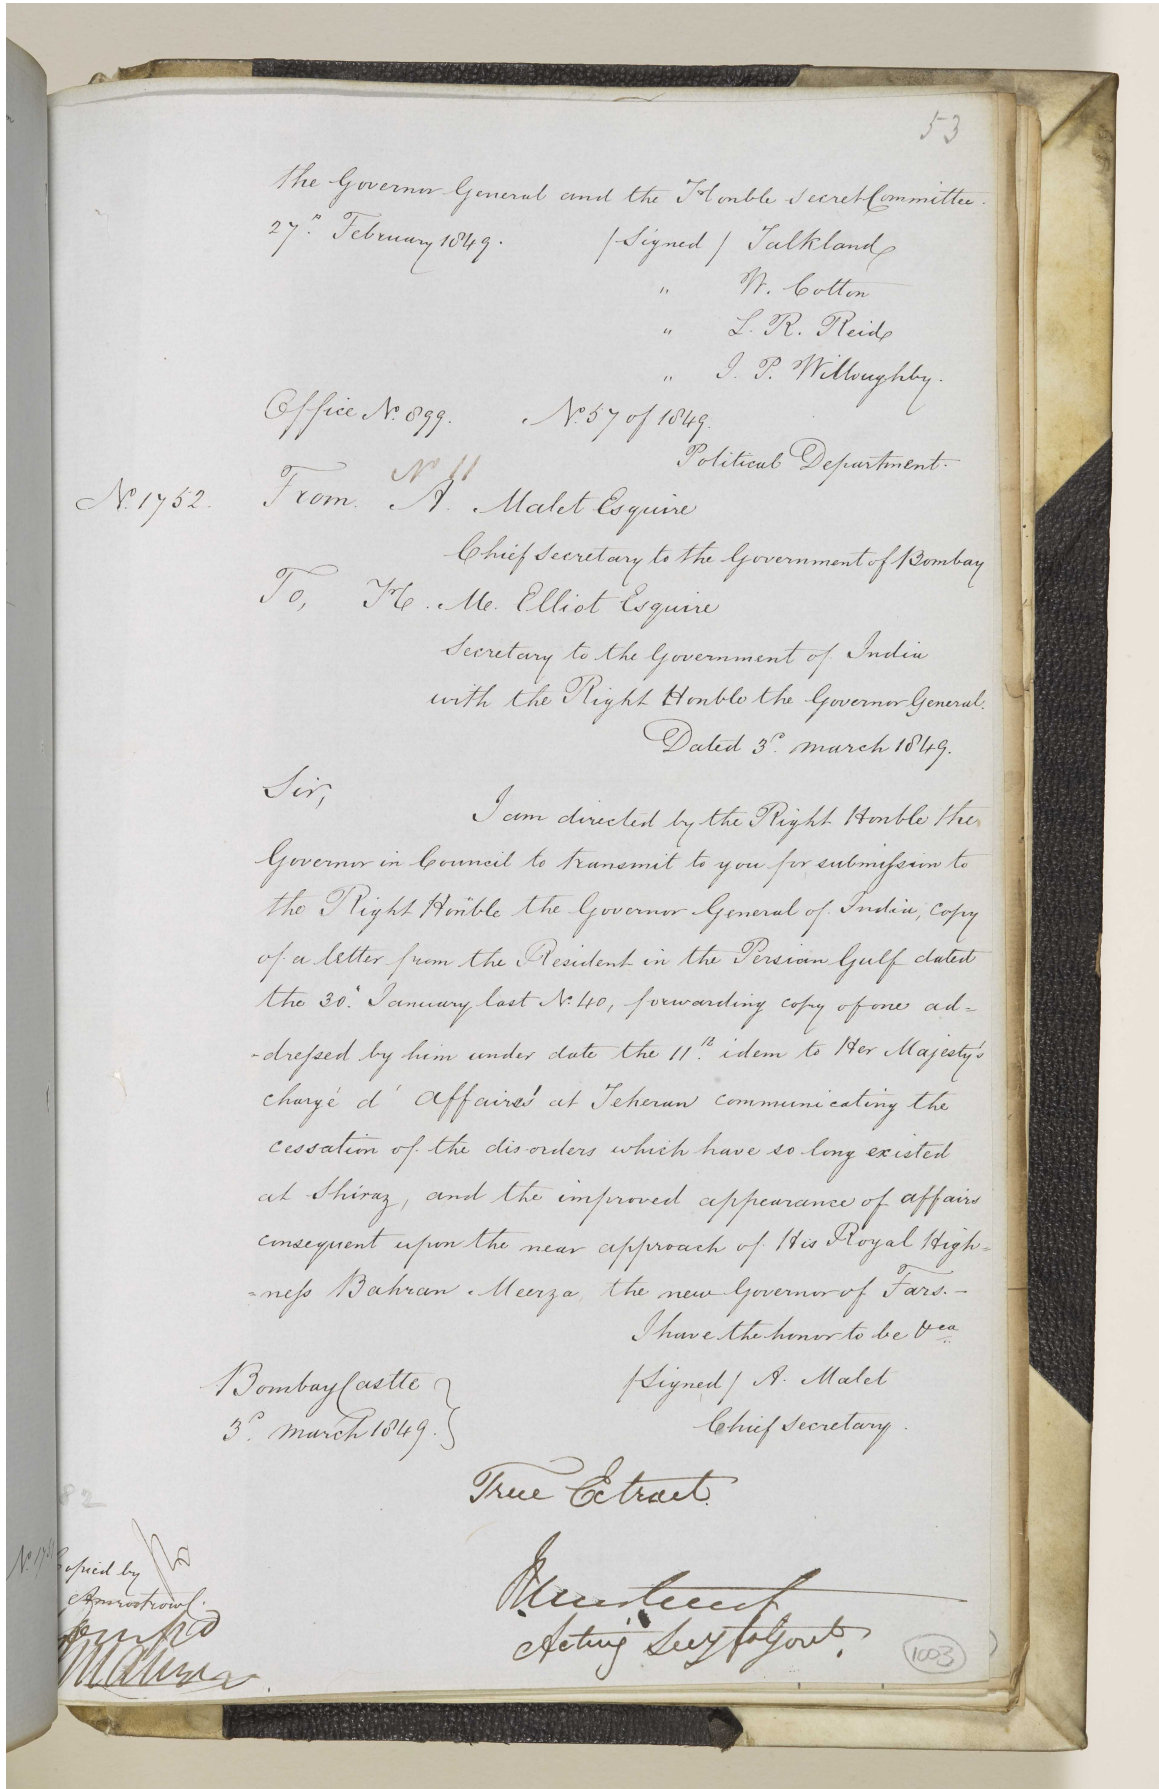 53
the Governor General and the Honble Secret Committee.
27th February 1849. /Signed/ Falkland
" W. Cotton
" L. R. Reid
" J. P. Willoughby.
Office No. 899. No. 57 of 1849.
Political Department.
No 11
No. 1752. From. A. Malet Esquire
Chief Secretary to the Government of Bombay
To, H. M. Elliot Esquire
Secretary to the Government of India
with the Right Honble the Governor General.
Dated 3d. march 1849.
Sir,
I am directed by the Right Honble the
Governor in Council to transmit to you for submission to
the Right Honble the Governor General of India, copy
of a letter from the Resident in the Persian Gulf dated
the 30th January last No. 40, forwarding copy of one ad=
-dressed by him under date the 11th idem to Her Majesty's
chargé d' affaires' at Teheran communicating the
cessation of the disorders which have so long existed
at Shiraz, and the improved appearance of affairs
consequent upon the near approach of His Royal High=
=ness Bahran Meerza, the new Governor of Fars.-
I have the honor to be &ca
Bombay Castle /Signed/ A. Malet
3d. march 1849. Chief Secretary.
True Extract.
82
No. 1751
Copied by
Acting Secy to Govt.
1003